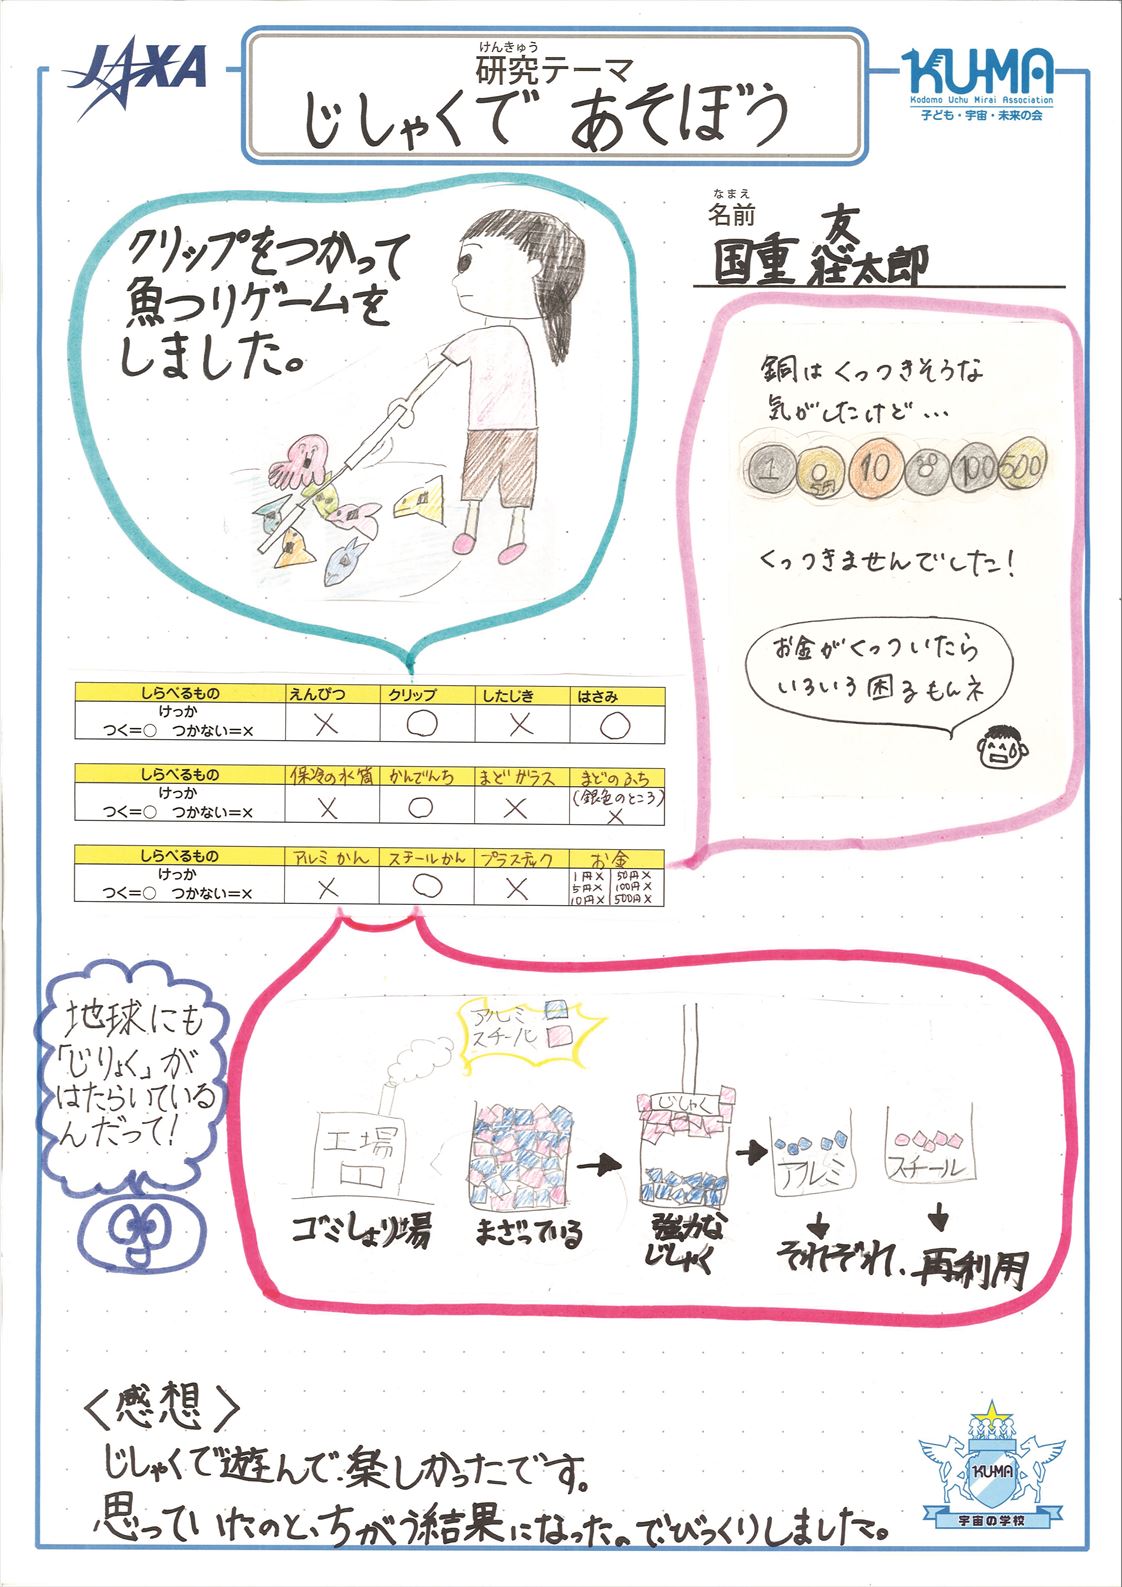 JAXA
けんきゅう
研究テーマ
じしゃくで あそぼう
KU-MA
Kodomo Uchu Mirai Association
子ども・宇宙・未来の会
なまえ
名前
友
国重 荘太郎
クリップをつかって
魚つりゲームを
しました。
銅はくっつきそうな
気がしたけど…
1 5円 10 50 100 500
くっつきませんでした!
お金がくっついたら
いろいろ困るもんネ
しらべるもの えんぴつ クリップ したじき はさみ
けっか
つく=○ つかない=× × ○ × ○
しらべるもの 保冷の水筒 かんでんち まどガラス まどのふち
(銀色のところ)
けっか
つく=○ つかない=× × ○ × ×
しらべるもの アルミかん スチールかん プラスチック お金
けっか
つく=○ つかない=× × ○ ×
1円× 50円×
5円× 100円×
10円× 500円×
地球にも
「じりょく」が
はたらいている
んだって!
アルミ
スチール
工場
ゴミしょり場
まざっている
じしゃく
強力な
じしゃく
アルミ
スチール
それぞれ、再利用
<感想>
じしゃくで遊んで、楽しかったです。
思っていたのと、ちがう結果になったのでびっくりしました。
KU-MA
宇宙の学校